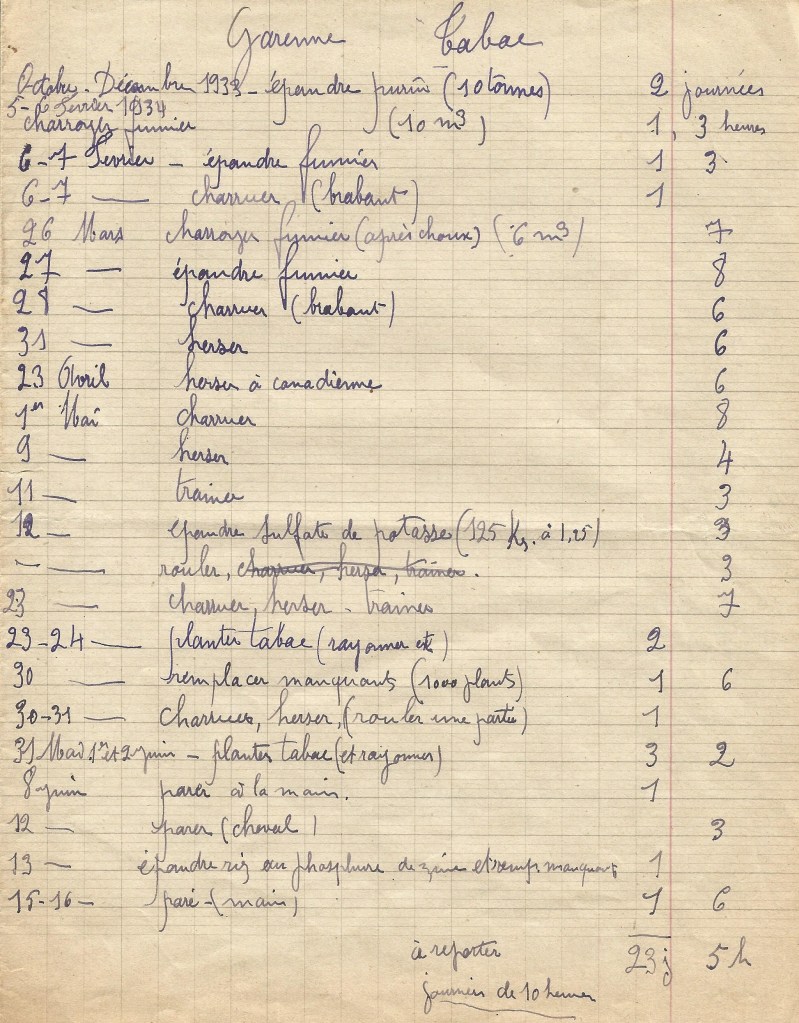 Garenne Tabac
Octobre - Décembre 1933 - épandre purin (10 tonnes) 2 journées
5-6 Février 1934
charroyer fumier (10 m³) 1, 3 heures
6-7 Février - épandre fumier 1 3
6-7 — charruer (brabant) 1
26 Mars charroyer fumier (après choux) (6 m³) 7
27 — épandre fumier 8
28 — charruer (brabant) 6
31 — herser 6
23 Avril herser à canadienne 6
1er Mai charruer 8
9 — herser 4
11 — trainer 3
12 — épandre sulfate de potasse (125 Kg. à 1,25) 3
- — rouler, charruer, herser, trainer. 3
23 — charruer, herser - trainer 7
23-24 — planter tabac (rayonner et) 2
30 — remplacer manquants (1000 plants) 1 6
30-31 — charruer, herser, (rouler une partie) 1
31 Mai 1er et 2 juin - planter tabac (et rayonner) 3 2
8 juin parer à la main. 1
12 — parer (cheval) 3
13 — épandre riz au phosphure de zinc et remp. manquants 1
15-16 - paré - (main) 1 6
à reporter 23j 5h
journées de 10 heures